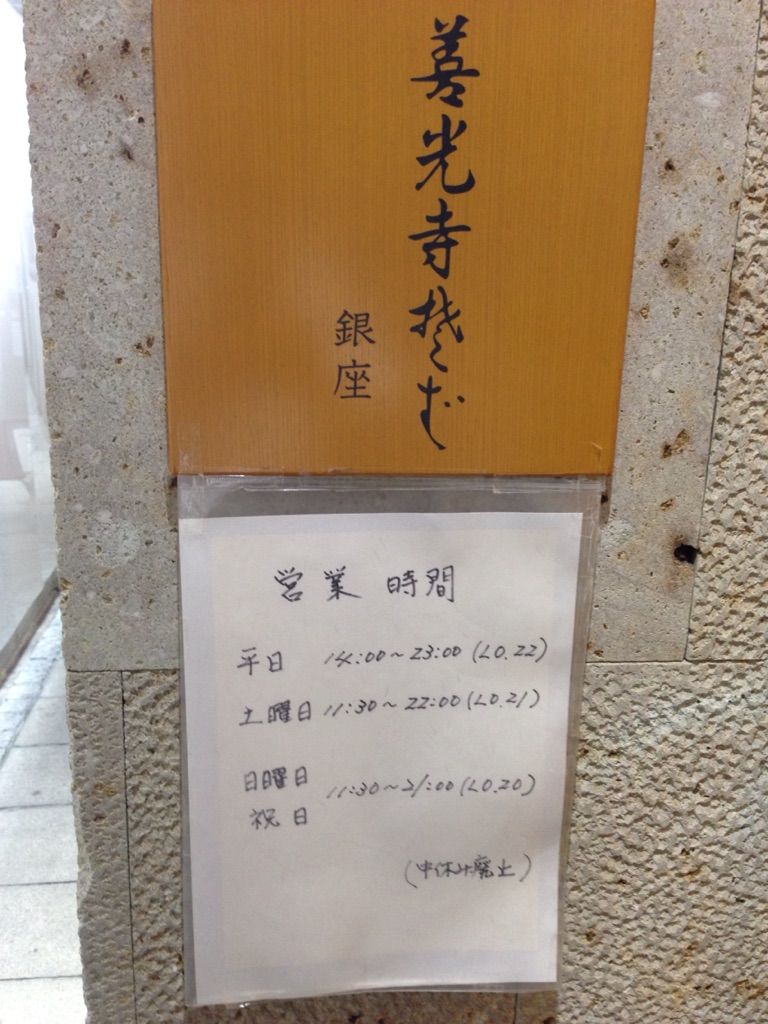 善光寺そば
銀座
営業時間
平日 14:00~23:00 (LO.22)
土曜日 11:30~22:00 (LO.21)
日曜日
祝日 11:30~21:00 (LO.20)
(中休み廃止)